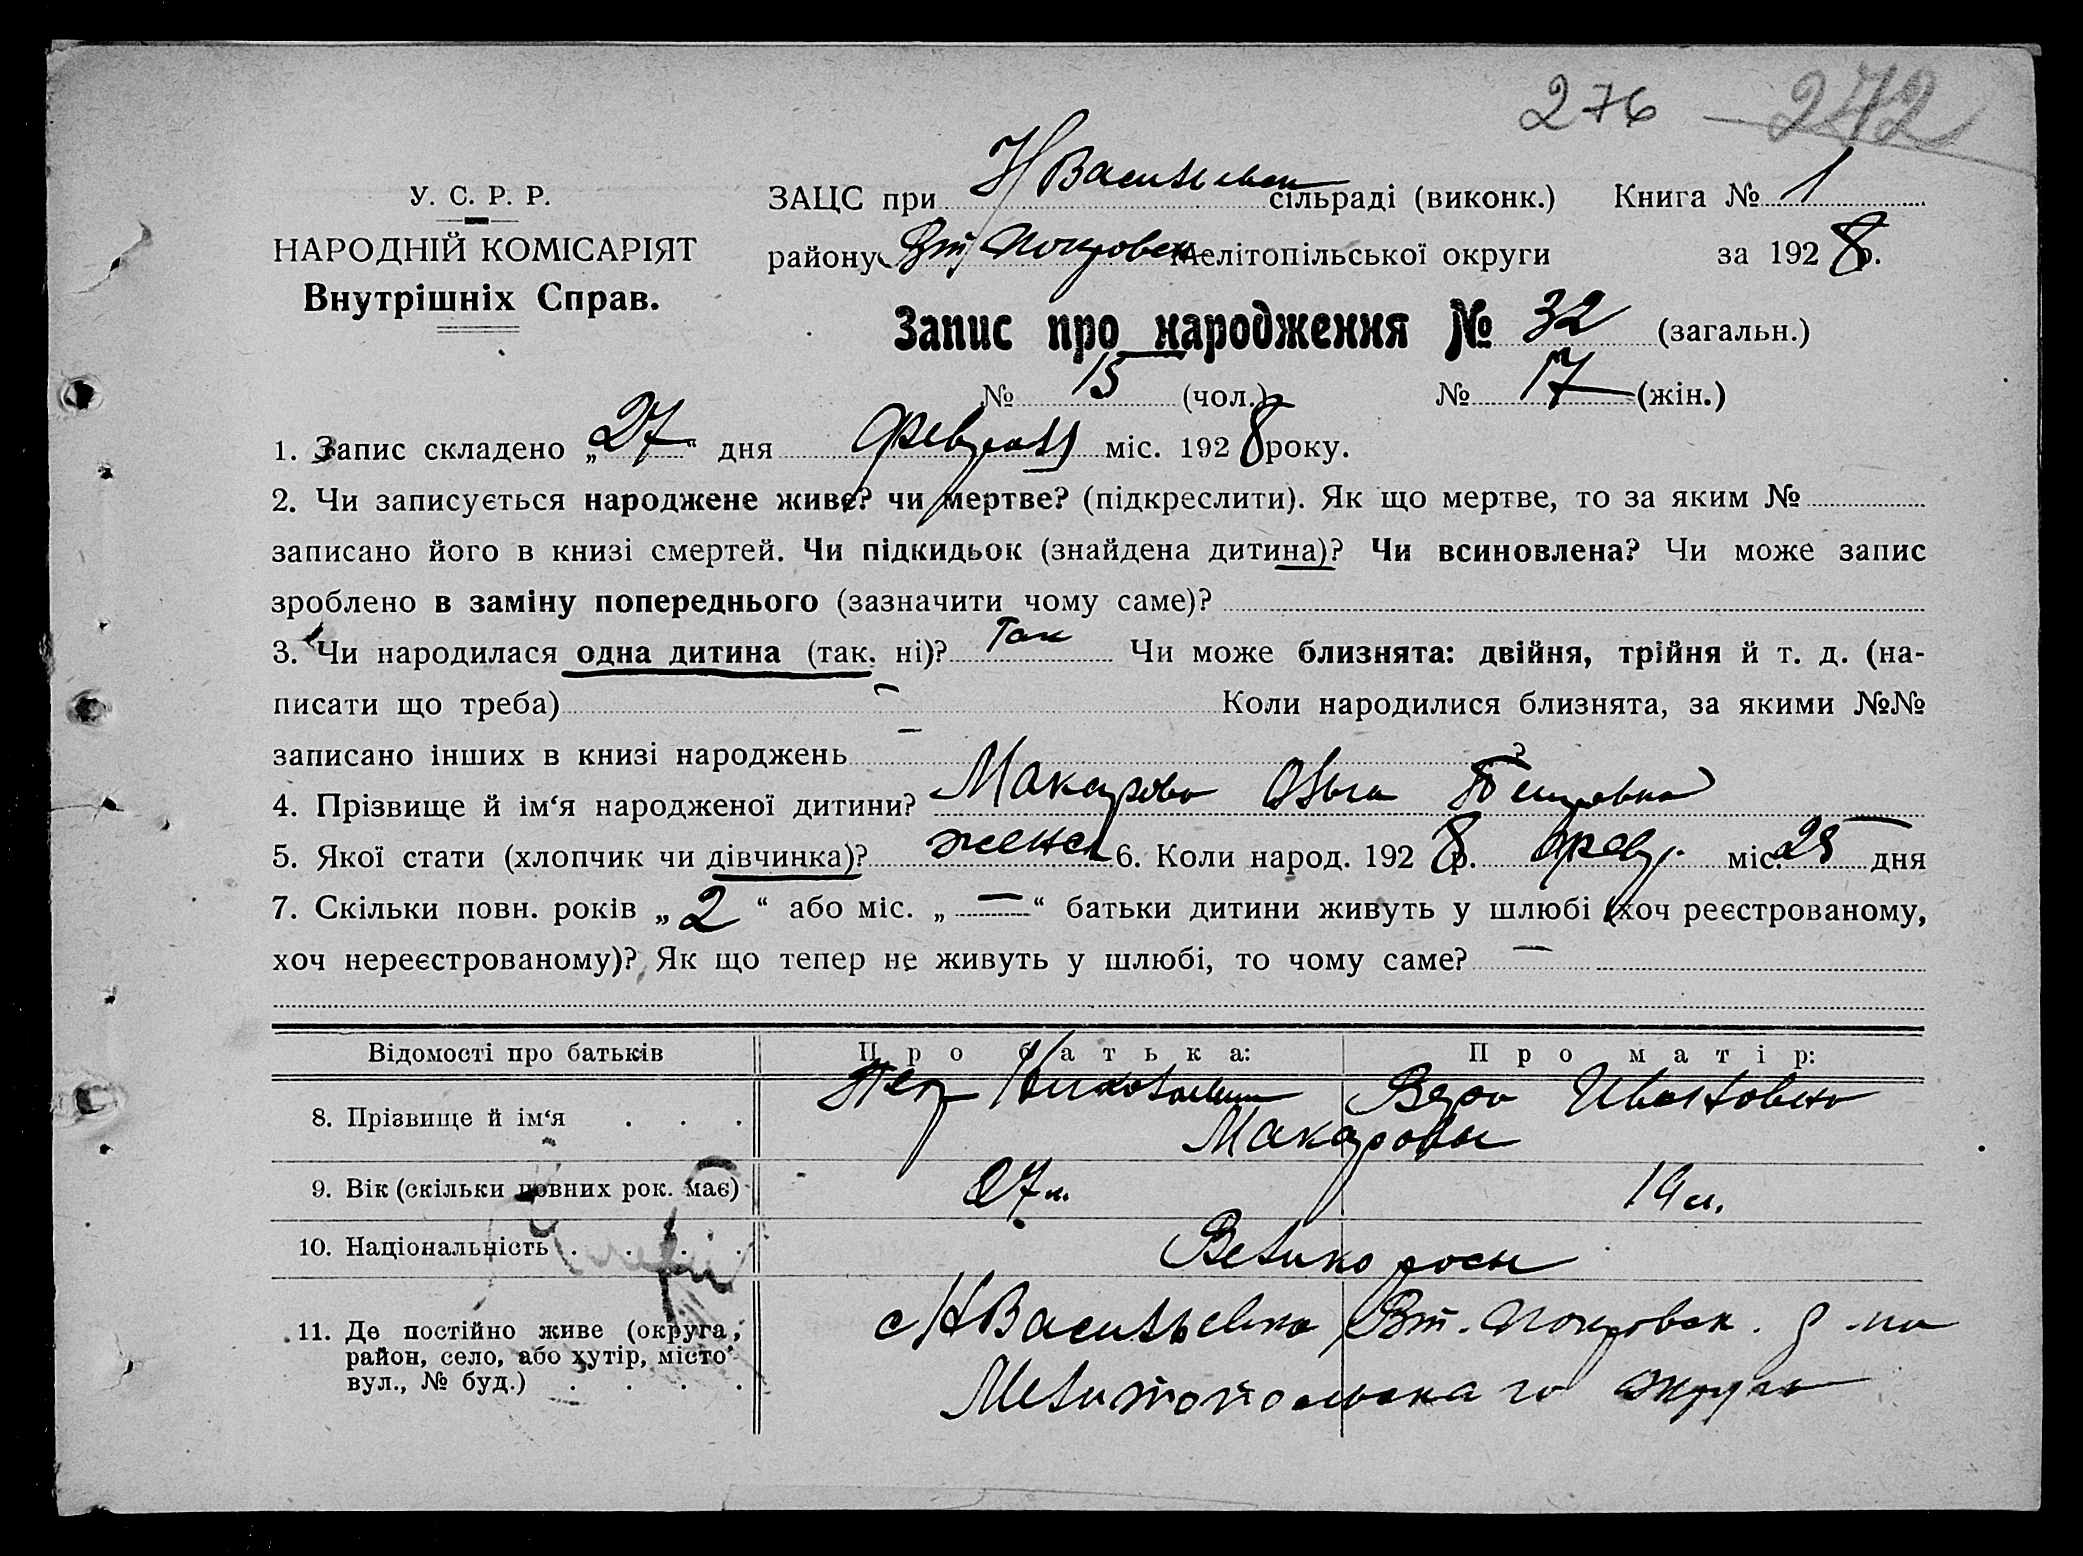 276 272
У. С. Р. Р.
НАРОДНІЙ КОМІСАРІЯТ
Внутрішніх Справ.
ЗАЦС при Н Васильевск сільраді (виконк.) Книга № 1
району Вт Покровск Мелітопільської округи за 1928 р.
Запис про народження № 32 (загальн.)
№ 15 (чол.) № 17 (жін.)
1. Запис складено „27“ дня февраля міс. 1928 року.
2. Чи записується народжене живе? чи мертве? (підкреслити). Як що мертве, то за яким №
записано його в книзі смертей. Чи підкидьок (знайдена дитина)? Чи всиновлена? Чи може запис
зроблено в заміну попереднього (зазначити чому саме)?
3. Чи народилася одна дитина (так, ні)? Так Чи може близнята: двійня, трійня й т. д. (на-
писати що треба) — Коли народилися близнята, за якими №№
записано інших в книзі народжень —
4. Прізвище й ім‘я народженої дитини? Макарова Ольга Петровна
5. Якої стати (хлопчик чи дівчинка)? женск 6. Коли народ. 1928 р. Февр. міс. 25 дня
7. Скільки повн. років „2“ або міс. „—“ батьки дитини живуть у шлюбі (хоч реєстрованому,
хоч нереєстрованому)? Як що тепер не живуть у шлюбі, то чому саме? —
Відомості про батьків Про батька: Про матір:
8. Прізвище й ім‘я . . . Петр Николаевич Вера Ивановна
Макаровы
9. Вік (скільки повних рок. має) 27 л. 19 л.
10. Національність . . . . Великоросы
11. Де постійно живе (округа, с НВасильевка Вт. Покровск. р-на
район, село, або хутір, місто
вул., № буд.) . . . . Мелитопольскаго округа